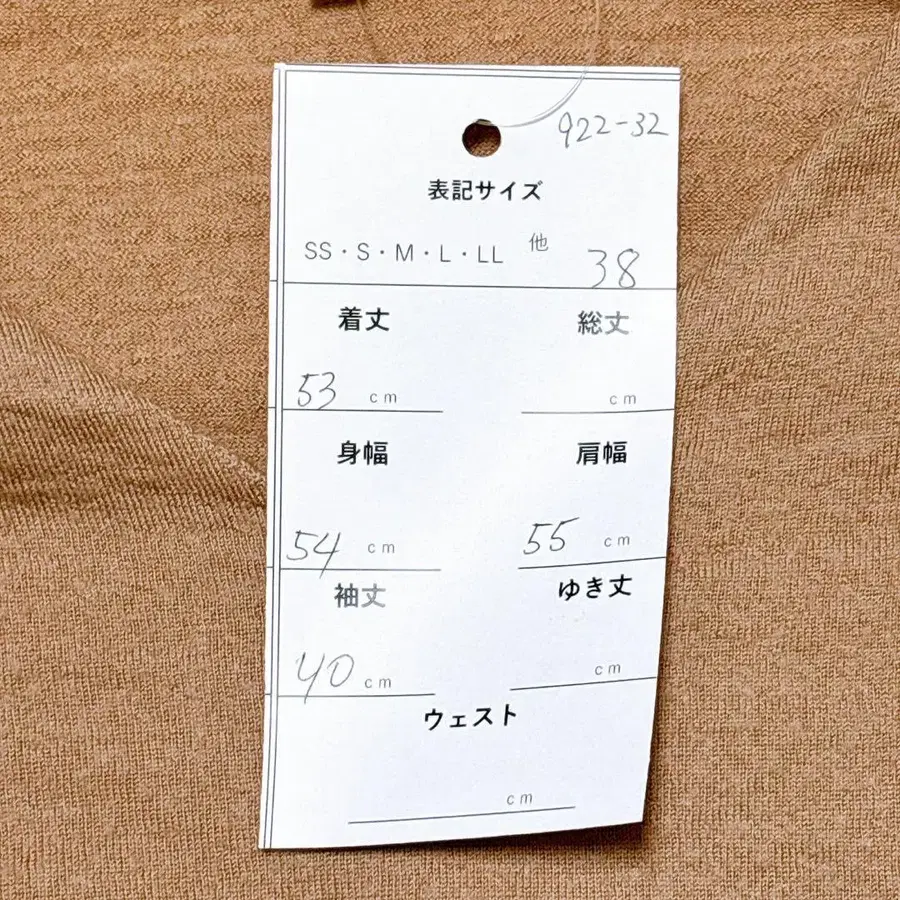 922-32
表記サイズ
SS・S・M・L・LL 他 38
着丈 総丈
53 cm cm
身幅 肩幅
54 cm 55 cm
袖丈 ゆき丈
40 cm cm
ウェスト
cm